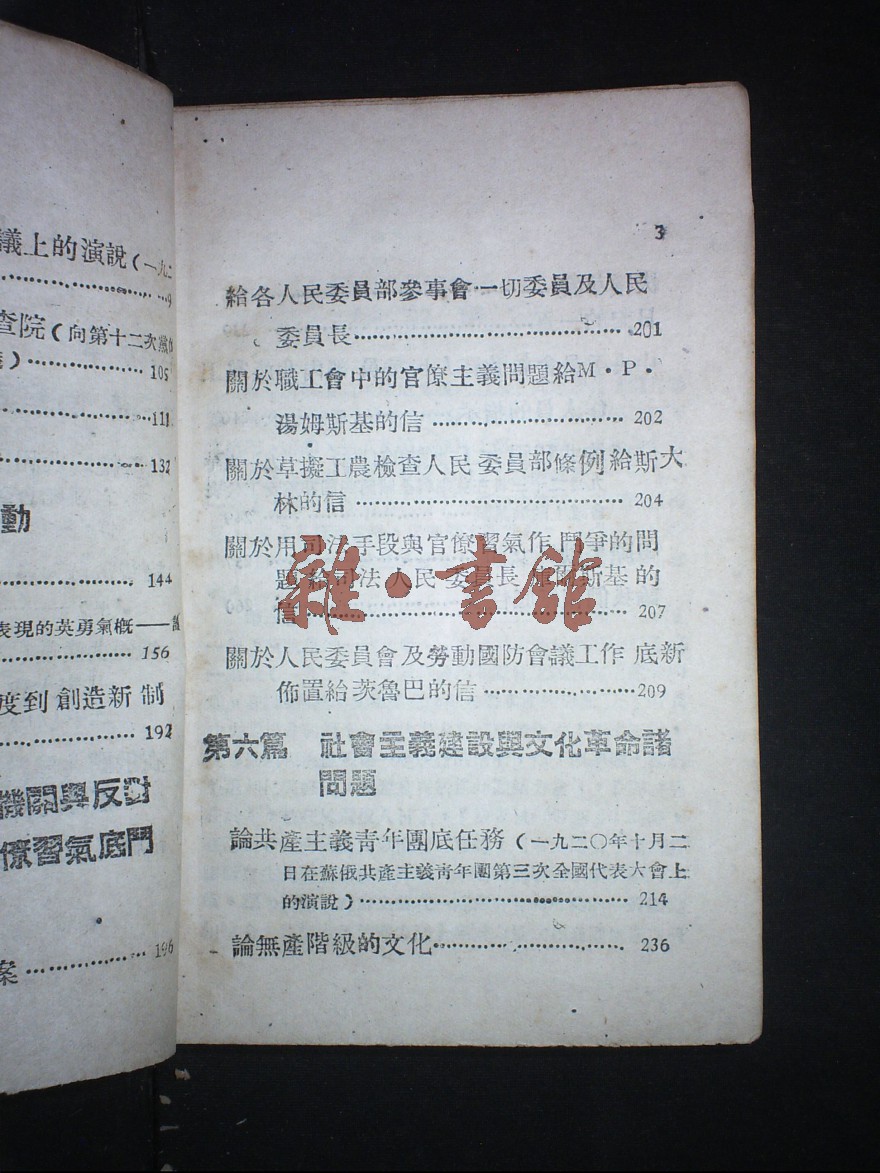 議上的演說(一九二
9
查院(向第十二次黨
)105
111
132
動
144
表現的英勇氣概——
156
度到創造新制
192
機關與反對
僚習氣底鬥
196
案
3
給各人民委員部參事會一切委員及人民
委員長201
關於職工會中的官僚主義問題給M·P·
湯姆斯基的信202
關於草擬工農檢查人民委員部條例給斯大
林的信204
關於用司法手段與官僚習氣作鬥爭的問
題給司法人民委員長 斯基的
信207
關於人民委員會及勞動國防會議工作底新
佈置給茨魯巴的信209
第六篇 社會主義建設與文化革命諸
問題
論共產主義青年團底任務(一九二〇年十月二
日在蘇俄共產主義青年團第三次全國代表大會上
的演說)214
論無產階級的文化236
雜·書館